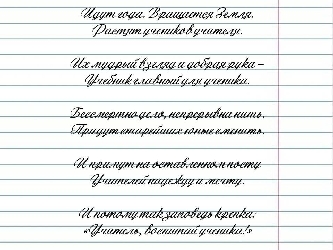 Идут года. Вращается Земля.
Растут ученики в учителя.
Их мудрый взгляд и добрая рука –
Учебник главный для ученика.
Бессмертно дело, непрерывна нить.
Придут старейших юные сменить.
И примут на оставленном посту
Учителей надежду и мечту.
И потому так заповедь крепка:
«Учитель, воспитай ученика!»